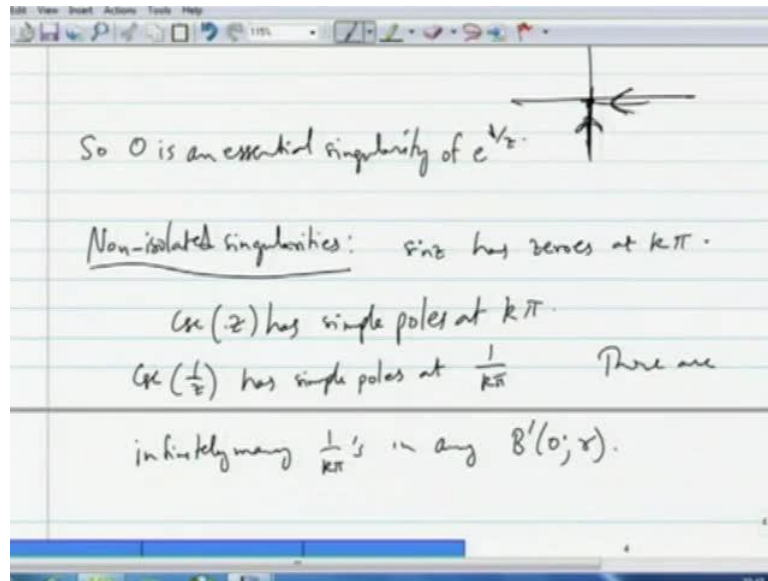 Edit View Insert Actions Tools Help
115%
So 0 is an essential singularity of e^{1/z}.
Non-isolated singularities: sinz has zeroes at kπ.
Csc(z) has simple poles at kπ.
Csc(1/z) has simple poles at 1/kπ There are
infinitely many 1/kπ's in any B'(0; r).